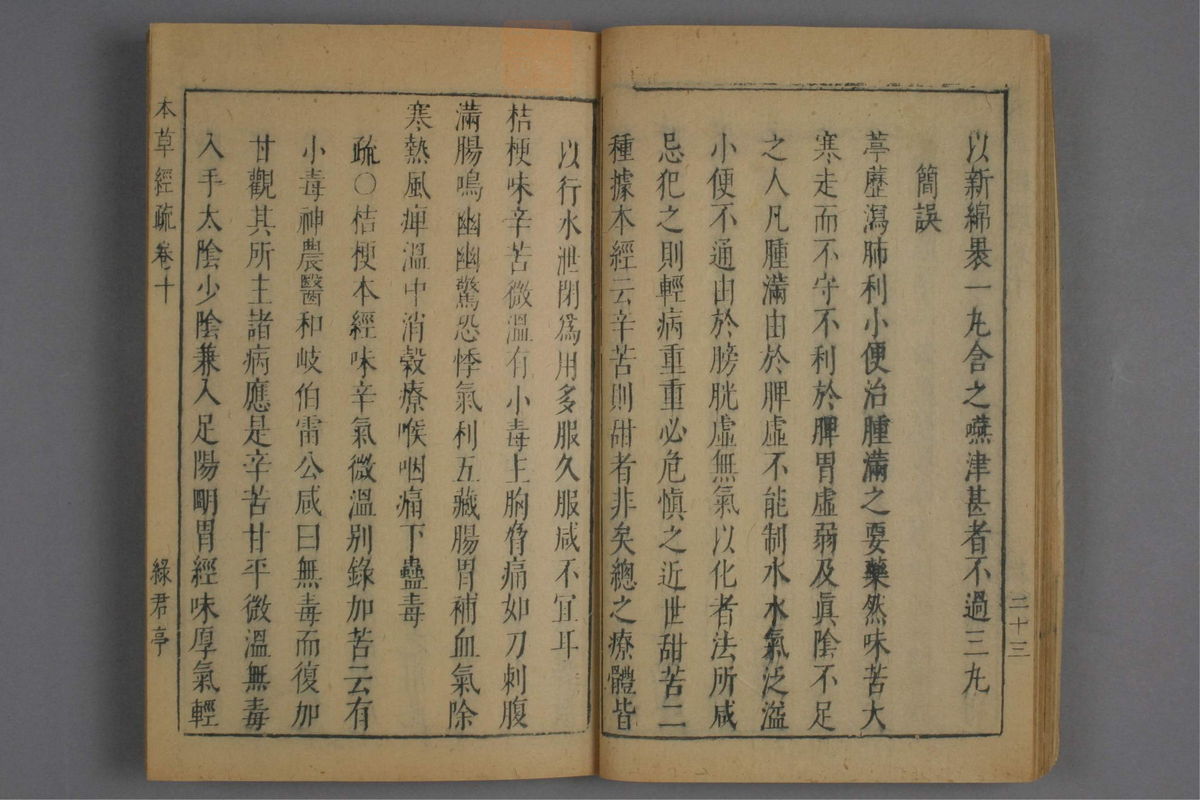 二十三
以新綿褁一丸含之嚥津甚者不過三丸
簡誤
葶藶瀉肺利小便治腫滿之要藥然味苦大
寒走而不守不利於脾胃虛弱及眞陰不足
之人凡腫滿由於脾虛不能制水水氣泛溢
小便不通由於膀胱虛無氣以化者法所咸
忌犯之則輕病重重必危慎之近世甜苦二
種據本經云辛苦則甜者非矣總之療體皆
以行水泄閉爲用多服久服咸不宜耳
桔梗味辛苦微溫有小毒主胸脅痛如刀刺腹
滿腸鳴幽幽驚恐悸氣利五藏腸胃補血氣除
寒熱風痺溫中消穀療喉咽痛下蠱毒
疏〇桔梗本經味辛氣微溫別錄加苦云有
小毒神農醫和岐伯雷公咸曰無毒而復加
甘觀其所主諸病應是辛苦甘平微溫無毒
入手太陰少陰兼入足陽明胃經味厚氣輕
本草經疏 卷十 綠君亭